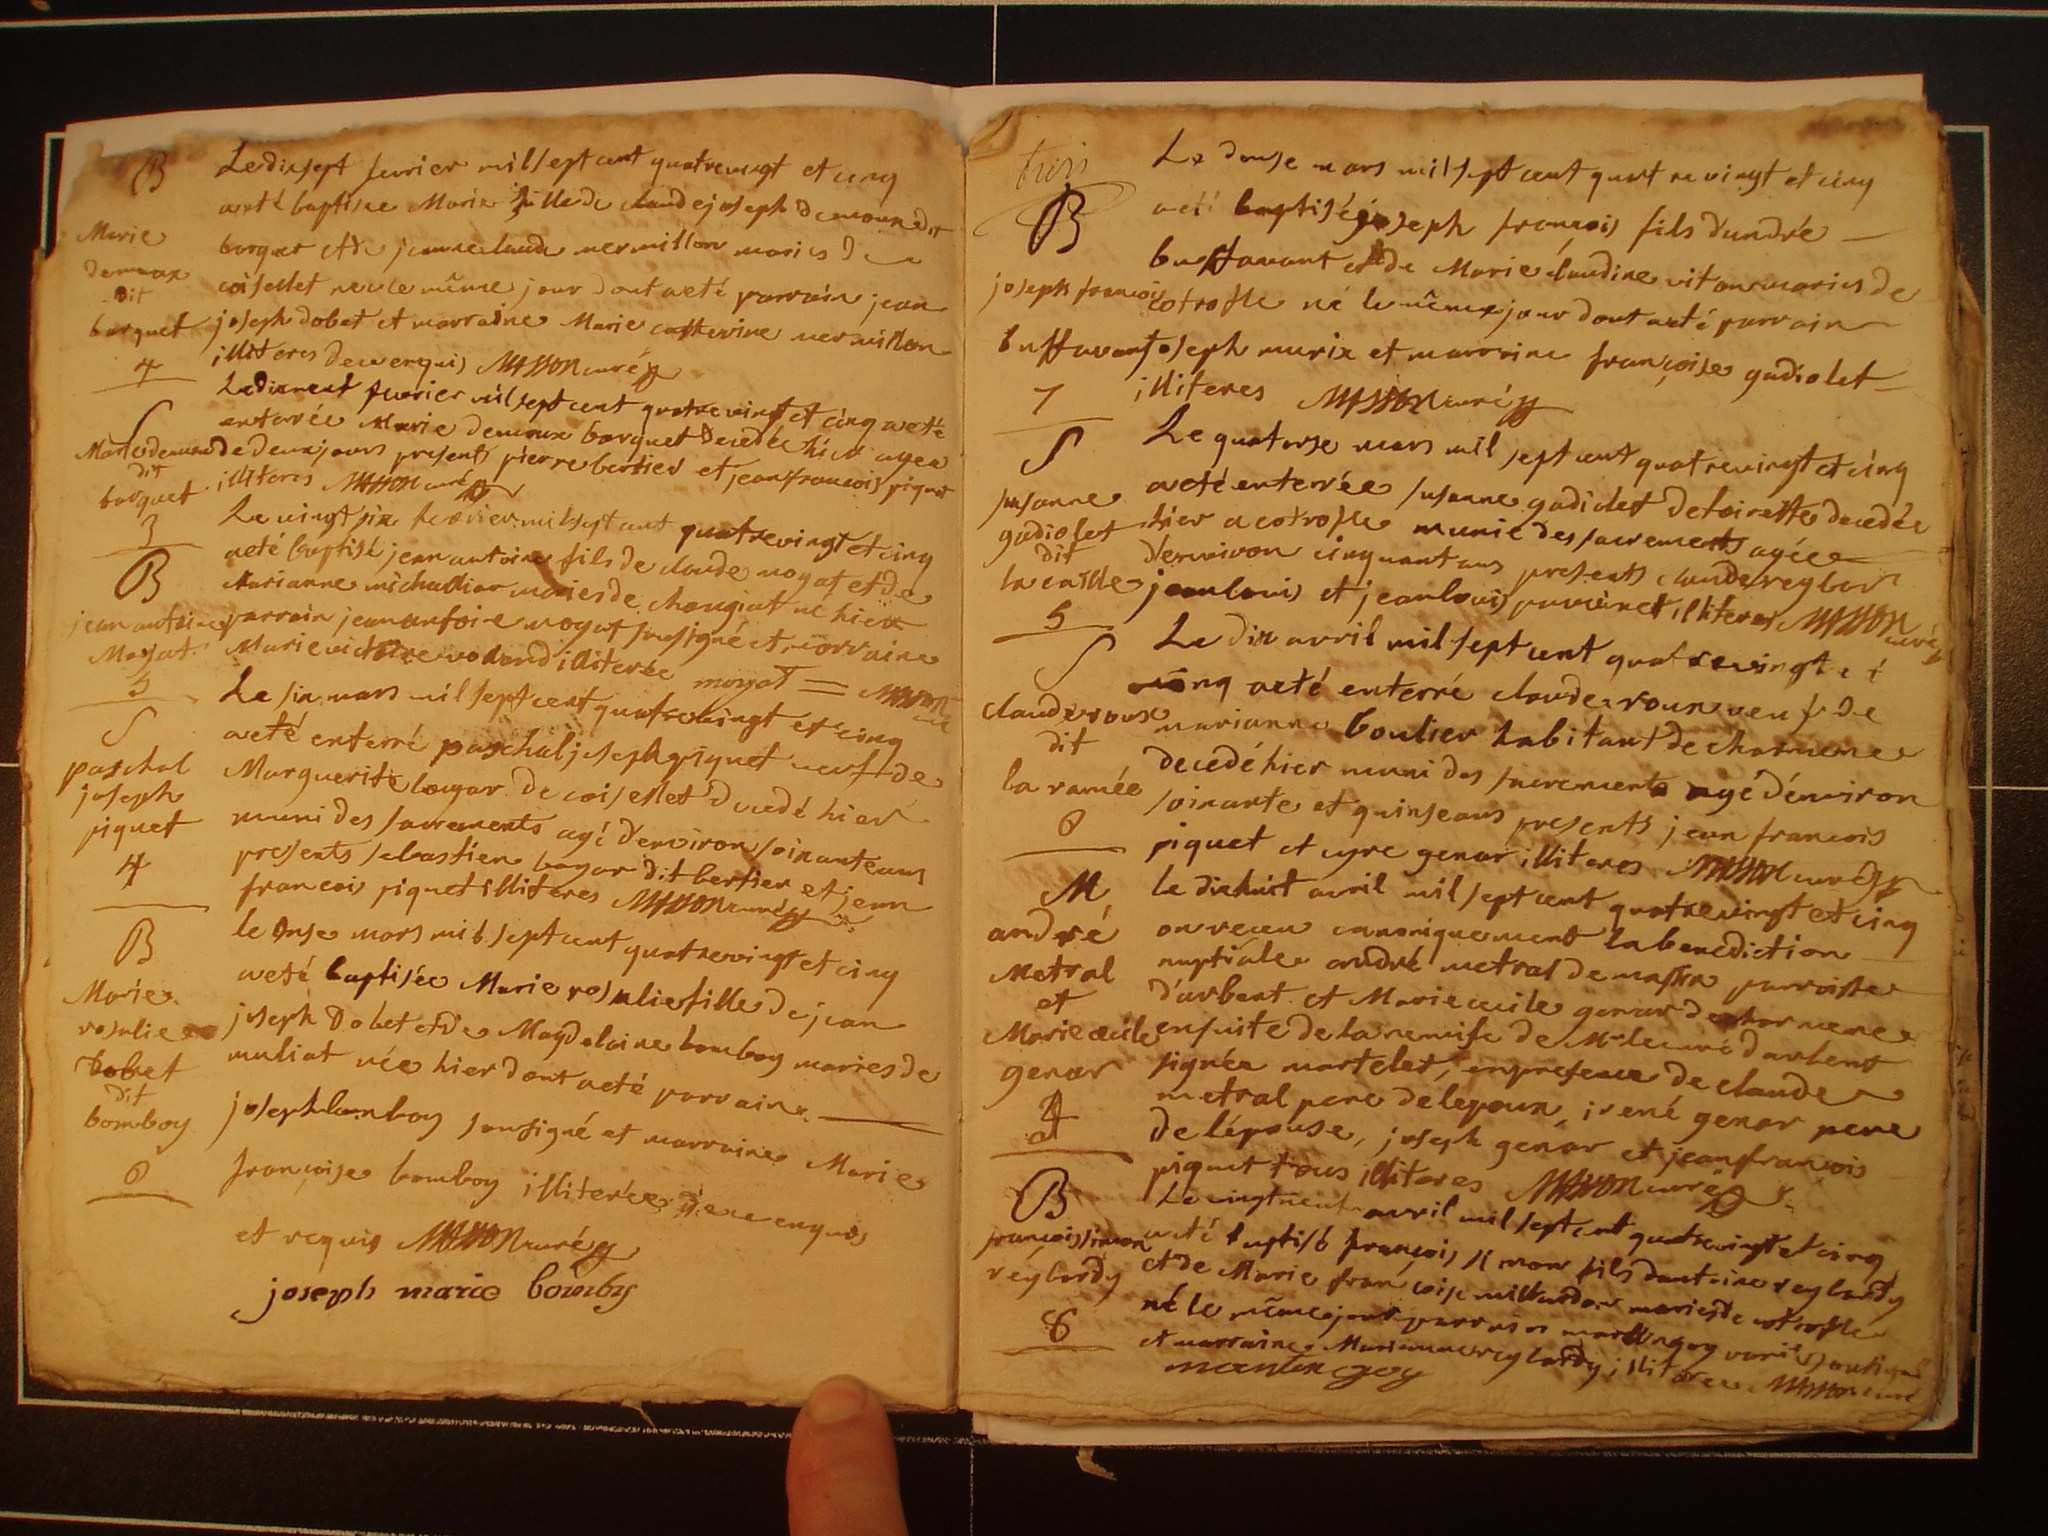 B
Marie
demoux
dit
borguet
4
Le dixsept fevrier mil sept cent quatrevingt et cinq
aeté baptisée Marie fille de claude joseph demoux dit
borguet et de jeanne claude vermillon mariés de
coiselet née le même jour dont aeté parrain jean
joseph dobet et marraine Marie catherine vermillon
illiteres de ce enquis MASSON curé
S
Marie demoux
dit
borguet
3
Le dixneuf fevrier mil sept cent quatrevingt et cinq aeté
enterrée Marie demoux borguet decedée hier agée
de deux jours presents pierre bertier et jean francois piquet
illiteres MASSON curé
B
jean antoine
Moyat
5
Le vingt six fevrier mil sept cent quatrevingt et cinq
aeté baptisé jean antoine fils de claude moyat et de
Marianne michallier mariés de chougiat né hier
parrain jean antoine moyat soussigné et marraine
Marie victoire volland illiterée moyat = MASSON curé
S
paschal
joseph
piquet
4
Le six mars mil sept cent quatrevingt et cinq
aeté enterré paschal joseph piquet veuf de
Marguerite de coiselet decedé hier
muni des sacrements agé d'environ soixante ans
presents sebastien dit bertier et jean
francois piquet illiteres MASSON curé
B
Marie
rosalie
Dobet
dit
bomboy
6
le onse mars mil sept cent quatrevingt et cinq
aeté baptisée Marie rosalie fille de jean
joseph Dobet et de Magdelaine bomboy mariés de
muliat née hier dont aeté parrain
joseph bomboy sousigné et marraine Marie
françoise bomboy illiterée de ce enquis
et requis MASSON curé
joseph marie bomboy
trois
B
joseph francois
buffavant
7
Le douse mars mil sept cent quatrevingt et cinq
aeté baptisé joseph françois fils d'andré
buffavant et de Marie claudine vitan mariés de
cotrofle né le même jour dont aeté parrain
joseph murix et marraine françoise gadiolet
illiteres MASSON curé
S
susanne
gadiolet
dit
5
Le quatorse mars mil sept cent quatrevingt et cinq
aeté enterrée susanne gadiolet de toirette decedée
hier a cotrofle munie des sacrements agée
d'environ cinquant ans presents claude reylor
jean louis et jean louis illiteres MASSON curé
S
claude roux
dit
la ramée
6
Le dix avril mil sept cent quatrevingt et
cinq aeté enterré claude roux veuf de
marianne boulier habitant de charneme
decedé hier muni des sacrements agé d'environ
soixante et quinse ans presents jean francois
piquet et cyre genar illiteres MASSON curé
M
andré
Metral
et
Marie cecile
genar
2
le dixhuit avril mil sept cent quatrevingt et cinq
on receu canoniquement la benediction
nuptiale andré metral de massia parroisse
d'arbent et Marie cecile genar de charneme
ensuite de la remise de Mr le curé d'arbent
signée martelet, en presence de claude
metral pere de l'epoux, irené genar pere
de l'épouse, joseph genar et jean françois
piquet tous illiteres MASSON curé
B
francois simon
reylardy
8
Le vingtneuf avril mil sept cent quatrevingt et cinq
aeté baptisé françois simon fils d'antoine reylardy
et de Marie françoise millardon mariés de cotrofle
né le même jour parrain martin goy soussigné
et marraine Marianne reylardy illiterée MASSON curé
martin goy